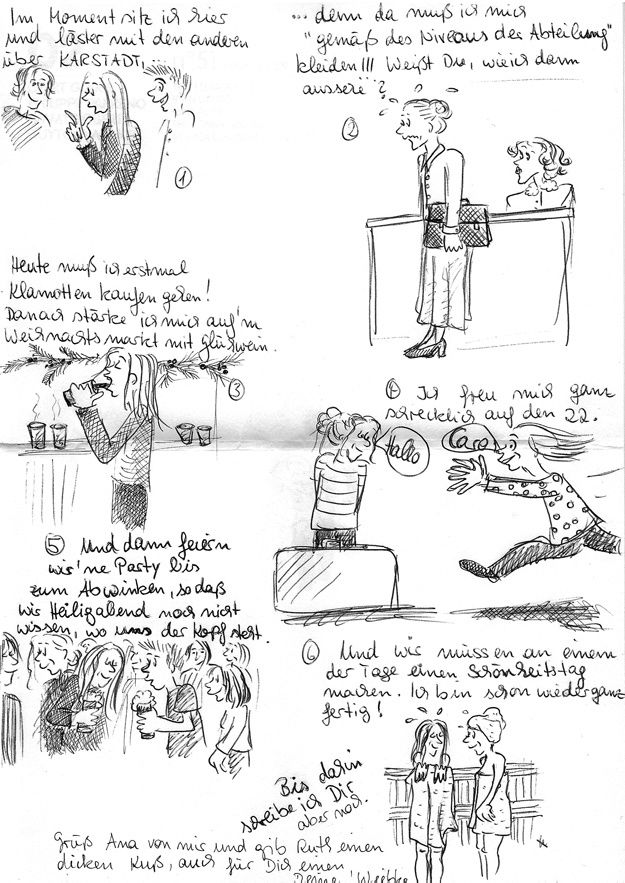 Im Moment sitz ich hier
und läster mit den anderen
über KARSTADT, ...
①
... denn da muß ich mich
"gemäß des Niveaus der Abteilung"
kleiden!!! Weißt Du, wie ich dann
aussehe?
②
Heute muß ich erstmal
Klamotten kaufen gehen!
Danach stärke ich mich auf'm
Weihnachtsmarkt mit Glühwein.
③
④ Ich freu mich ganz
schrecklich auf den 22.
Hallo
Cara
⑤ Und dann feiern
wir 'ne Party bis
zum Abwinken, sodaß
wir Heiligabend noch nicht
wissen, wo uns der Kopf steht.
⑥ Und wir müssen an einem
der Tage einen Schönheitstag
machen. Ich bin schon wieder ganz
fertig!
Bis dahin
schreibe ich Dir
aber noch.
Grüß Ana von mir und gib Ruth einen
dicken Kuß, auch für Dich einen
Deine